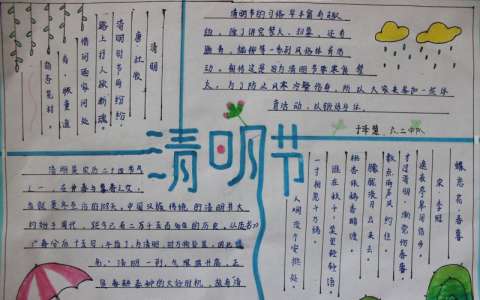 清明
唐 杜牧
清明时节雨纷纷
路上行人欲断魂。
借问酒家何处
有，牧童遥
指杏花村。
清明节的习俗是丰富有趣
的，除了讲究禁火、扫墓，还有
踏青、
动。相传这是因为清明节要寒食禁
火，为了防止寒食冷餐伤身，所以大家来参加一些体
育活动，以锻炼身体。
清明节
六二中队
清明是农历二十四节气
之一，在仲春与暮春之交，
中国汉族传统的清明节大
约始于周代，距今已有二千五百多年的历史。
春分后十五日，
名。"清明一到，气温升高，正
是春耕春种的大好时机，故有清
蝶恋花 春暮
宋 李冠
遥夜亭皋闲信步
才过清明，渐觉伤春暮
数点雨声风约住
朦胧淡月云来去
桃杏依稀香暗渡
谁在秋千，笑里轻轻语
一寸相思千万绪
人间没个安排处